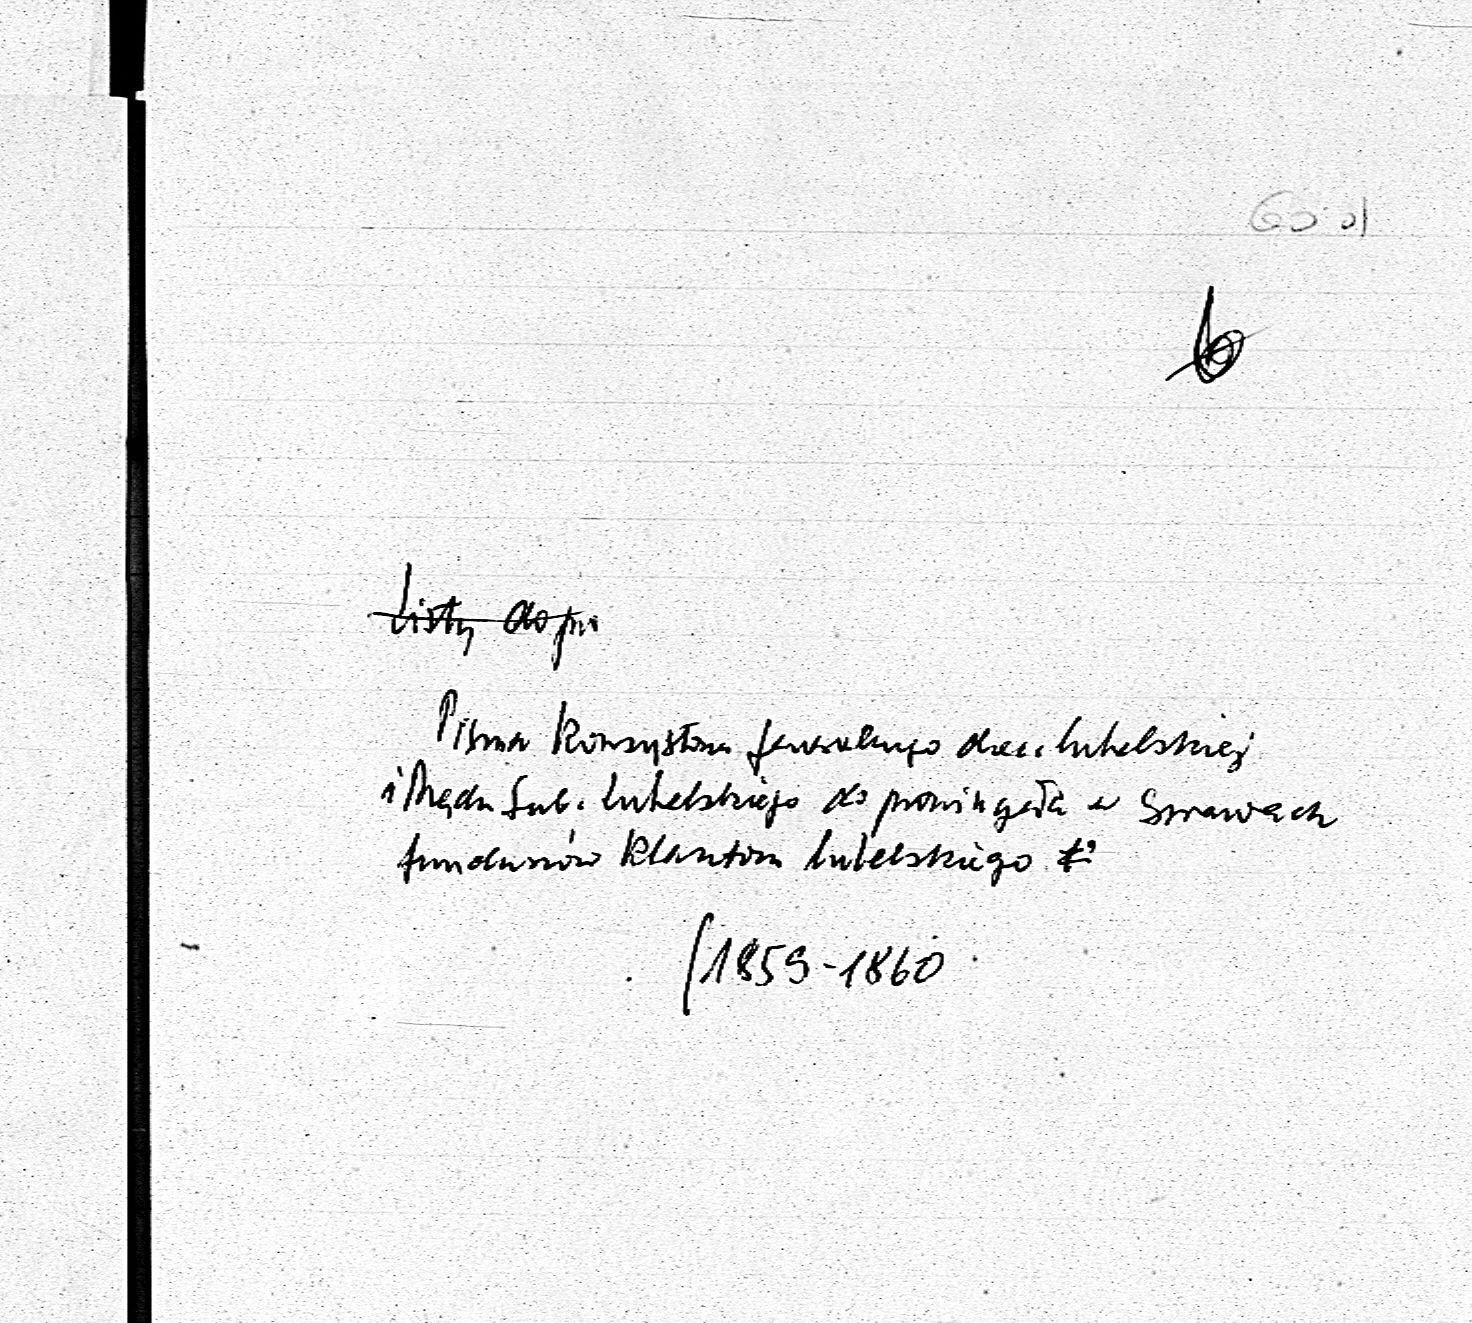 Listy do pr
Pisma Konsystorza Generalnego diec. lubelskiej
i Rządu Gub. lubelskiego do prowincjała w sprawach
funduszów klasztoru lubelskiego
(1859-1860